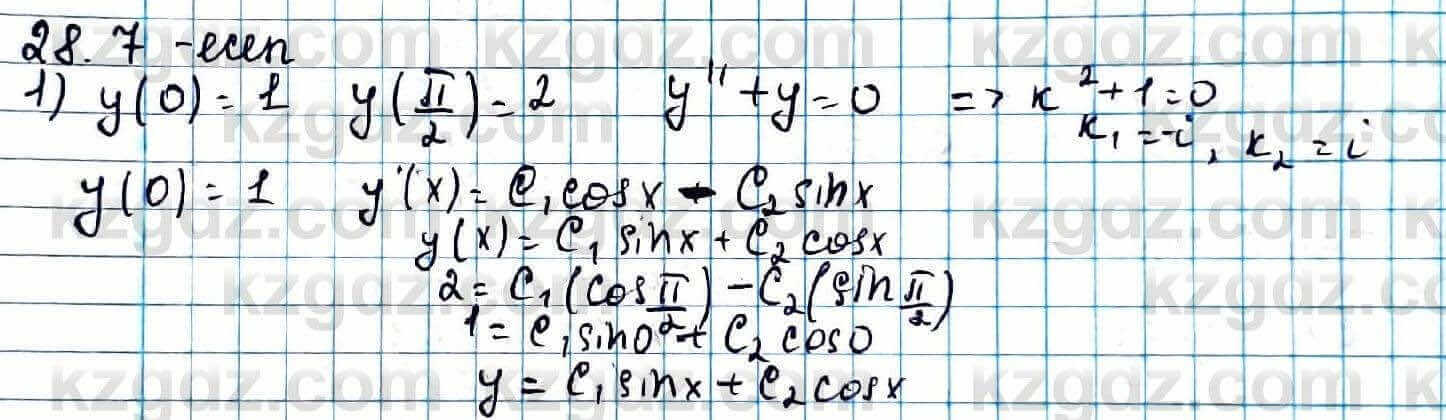 28.7 -есеп
1) y(0) = 1 y(π/2) = 2 y'' + y = 0 => k² + 1 = 0
k₁ = -i, k₂ = i
y(0) = 1 y'(x) = C₁ cosx - C₂ sinx
y(x) = C₁ sinx + C₂ cosx
2 = C₁(cos π/2) - C₂(sin π/2)
1 = C₁ sin0 + C₂ cos0
y = C₁ sinx + C₂ cosx